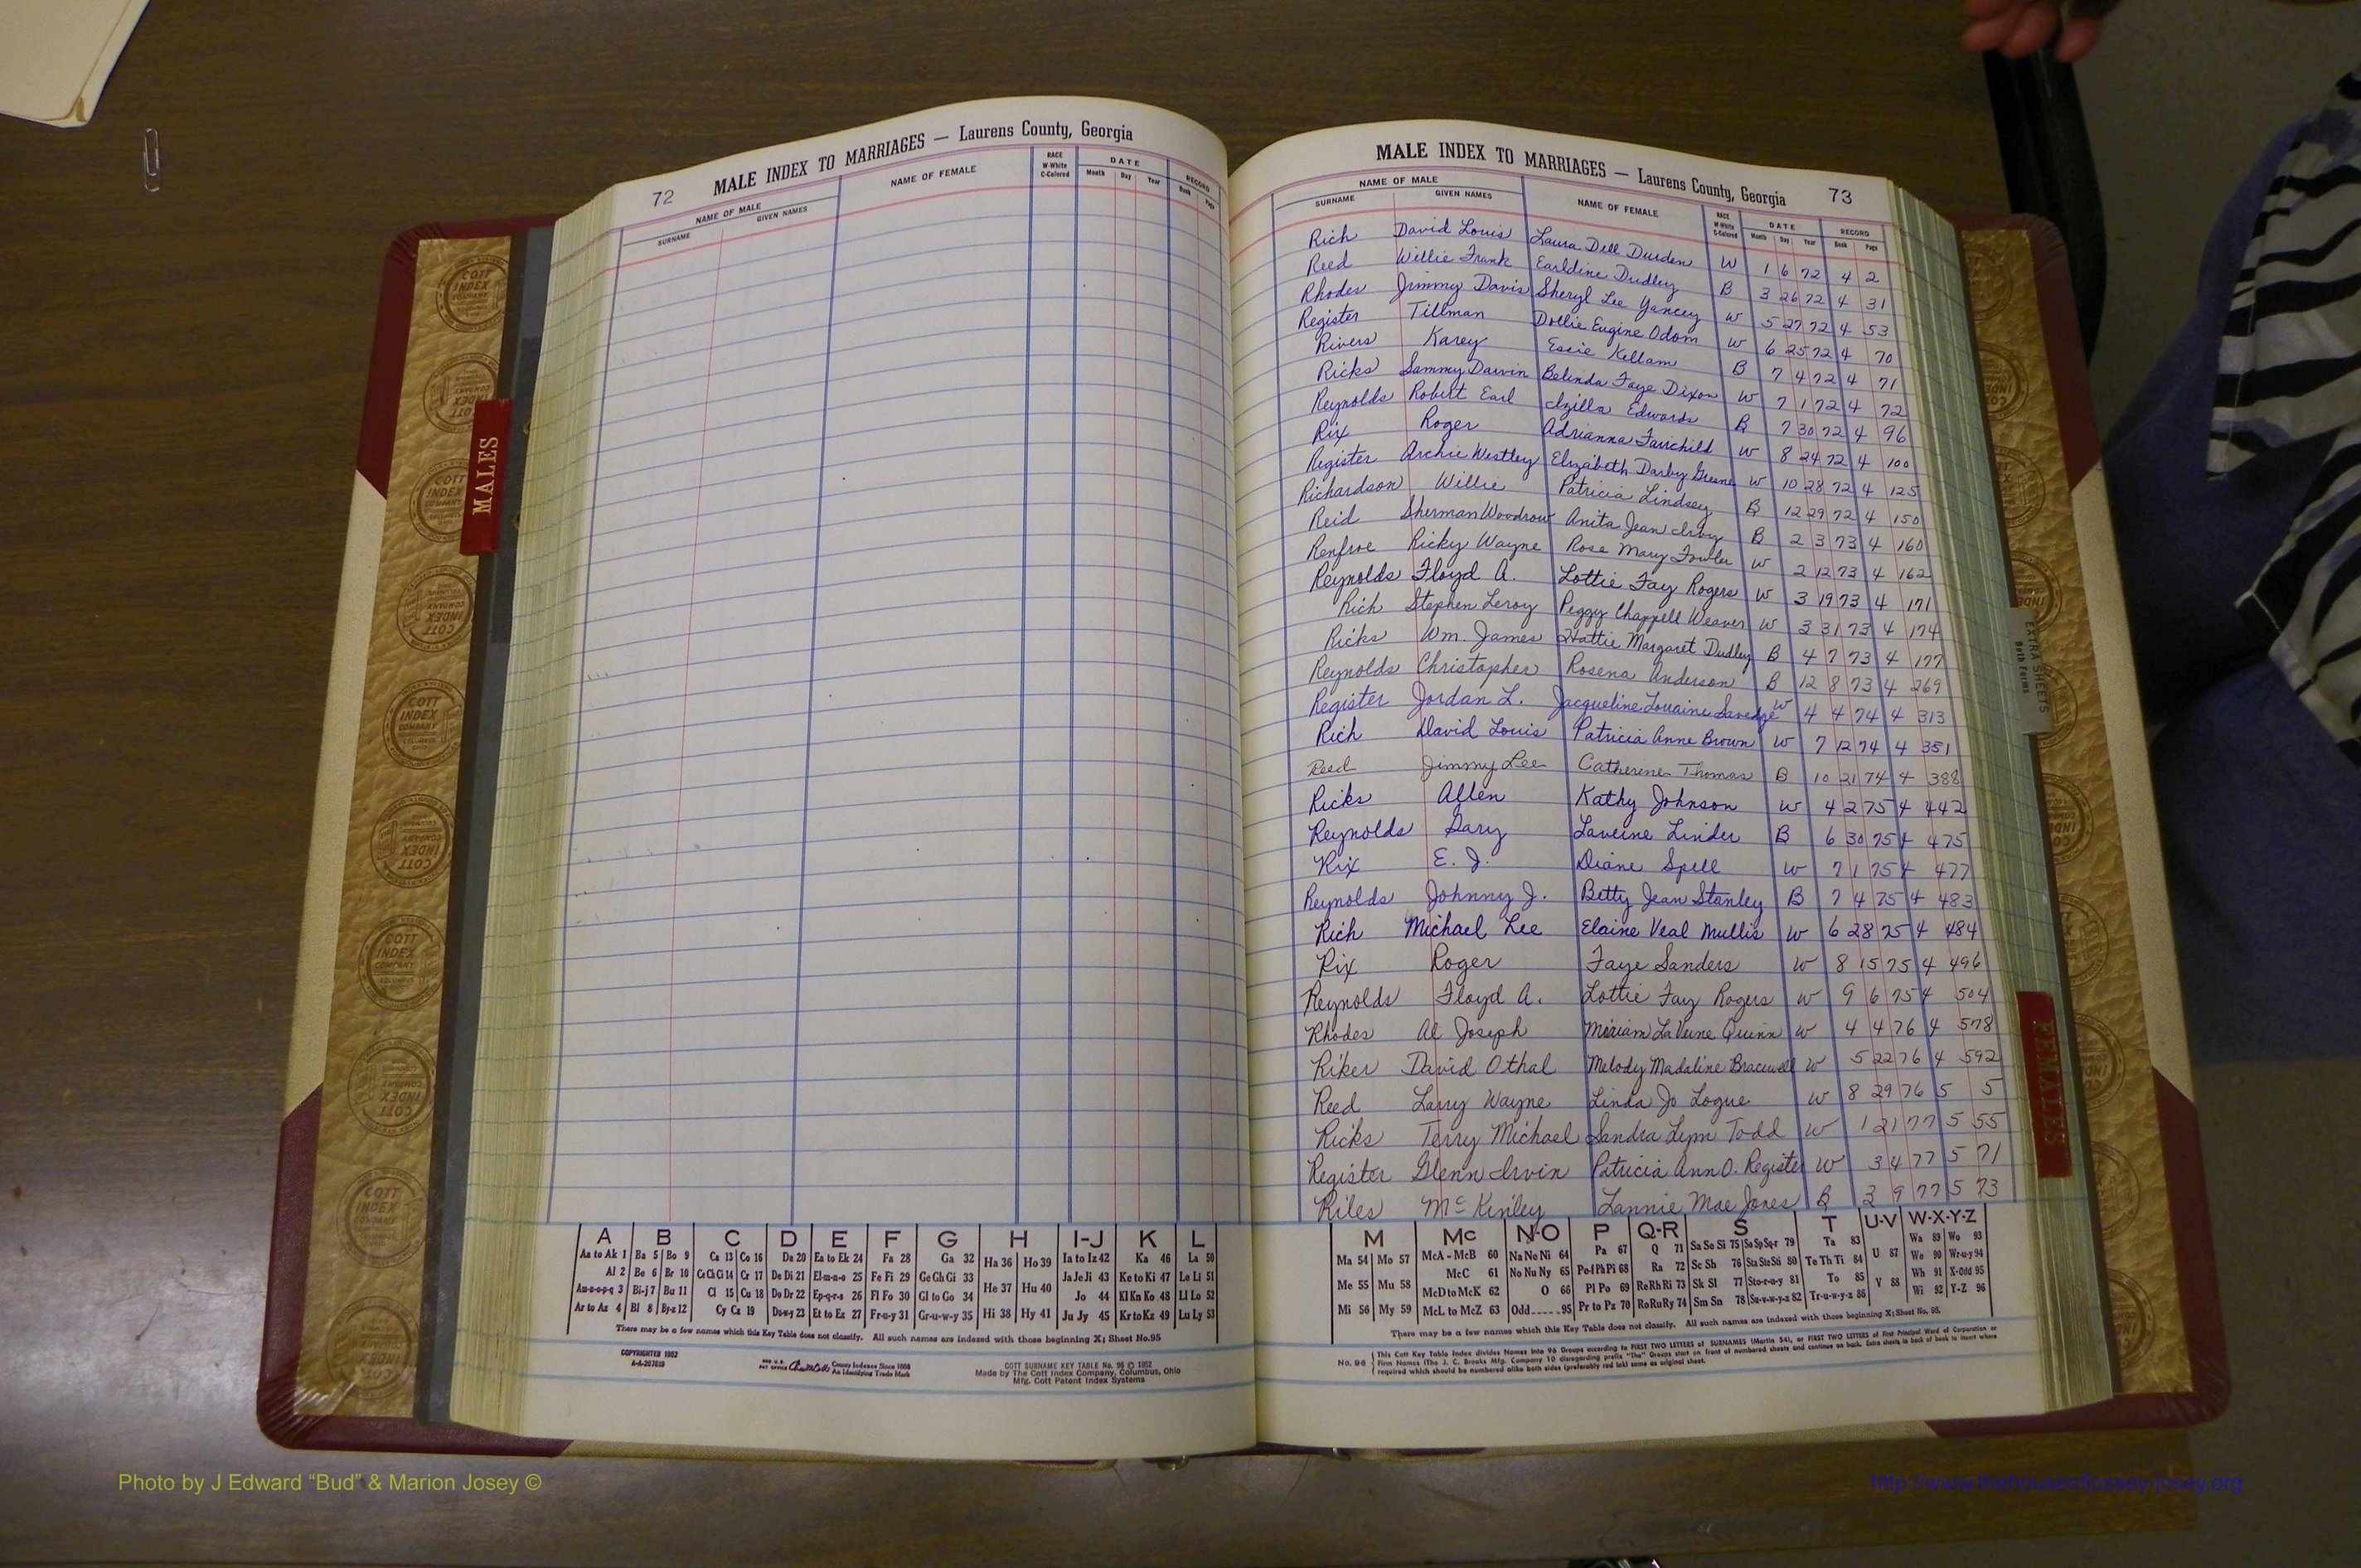 72 MALE INDEX TO MARRIAGES — Laurens County, Georgia
NAME OF MALE NAME OF FEMALE RACE W-White C-Colored DATE RECORD
SURNAME GIVEN NAMES Month Day Year Book Page
MALES
A B C D E F G H I-J K L
Aa to Ak 1 Ba 5 Bo 9 Ca 13 Co 16 Da 20 Ea to Ek 24 Fa 28 Ga 32 Ha 36 Ho 39 Ia to Iz 42 Ka 46 La 50
Al 2 Be 6 Br 10 Ce Ch Ci 14 Cr 17 De Di 21 El-m-n-o 25 Fe Fi 29 Ge Gh Gi 33 He 37 Hu 40 Ja Je Ji 43 Ke to Ki 47 Le Li 51
Am-n-o-p-q 3 Bi-j 7 Bu 11 Cl 15 Cu 18 Do Dr 22 Ep-q-r-s 26 Fl Fo 30 Gl to Go 34 Jo 44 Kl Kn Ko 48 Ll Lo 52
Ar to Az 4 Bl 8 By-z 12 Cy Cz 19 Du-w-y 23 Et to Ez 27 Fr-u-y 31 Gr-u-w-y 35 Hi 38 Hy 41 Ju Jy 45 Kr to Kz 49 Lu Ly 53
There may be a few names which this Key Table does not classify. All such names are Indexed with those beginning X; Sheet No. 95
COPYRIGHTED 1952
County Indexes Since 1888
An Identifying Trade Mark
COTT SURNAME KEY TABLE No. 96 © 1952
Made by The Cott Index Company, Columbus, Ohio
Mfg. Cott Patent Index Systems
MALE INDEX TO MARRIAGES — Laurens County, Georgia 73
NAME OF MALE NAME OF FEMALE RACE W-White C-Colored DATE RECORD
SURNAME GIVEN NAMES Month Day Year Book Page
Rich David Louis Laura Dell Durden W 1 6 72 4 2
Reed Willie Frank Earldine Dudley B 3 26 72 4 31
Rhodes Jimmy Davis Sheryl Lee Yancey W 5 27 72 4 53
Register Tillman Dollie Eugine Odom W 6 25 72 4 70
Rivers Karey Essie Kellam B 7 4 72 4 71
Ricks Sammy Darvin Belinda Faye Dixon W 7 1 72 4 72
Reynolds Robert Earl Izilla Edwards B 7 30 72 4 96
Rix Roger Adrianna Fairchild W 8 24 72 4 100
Register Archie Westley Elizabeth Darby Greene W 10 28 72 4 125
Richardson Willie Patricia Lindsey B 12 29 72 4 150
Reid Sherman Woodrow Anita Jean Ivey B 2 3 73 4 160
Renfroe Ricky Wayne Rose Mary Fowler W 2 12 73 4 162
Reynolds Floyd A. Lottie Fay Rogers W 3 19 73 4 171
Rich Stephen Leroy Peggy Chappell Weaver W 3 31 73 4 174
Ricks Wm. James Hattie Margaret Dudley B 4 7 73 4 177
Reynolds Christopher Rosena Anderson B 12 8 73 4 269
Register Jordan L. Jacqueline Louaine W 4 4 74 4 313
Rich David Louis Patricia Anne Brown W 7 12 74 4 351
Reed Jimmy Lee Catherine Thomas B 10 21 74 4 388
Ricks Allen Kathy Johnson W 4 2 75 4 442
Reynolds Gary Laverne Linder B 6 30 75 4 475
Rix E. J. Diane Spell W 7 1 75 4 477
Reynolds Johnny J. Betty Jean Stanley B 7 4 75 4 483
Rich Michael Lee Elaine Veal Mullis W 6 28 75 4 484
Rix Roger Faye Sanders W 8 15 75 4 496
Reynolds Floyd A. Lottie Fay Rogers W 9 6 75 4 504
Rhodes Al Joseph Miriam LaVerne Quinn W 4 4 76 4 578
Riker David Othal Melody Madaline Bracewell W 5 22 76 4 592
Reed Larry Wayne Linda Jo Logue W 8 29 76 5 5
Ricks Terry Michael Sandra Lynn Todd W 1 21 77 5 55
Register Glenn Irvin Patricia Ann O. Register W 3 4 77 5 71
Riles McKinley Lannie Mae Jones B 3 9 77 5 73
M Mc N-O P Q-R S T U-V W-X-Y-Z
Ma 54 Mo 57 McA - McB 60 Na Ne Ni 64 Pa 67 Q 71 Sa Se Si 75 So Sp Sq-r 79 Ta 83 U 87 Wa 89 Wo 93
Me 55 Mu 58 McC 61 No Nu Ny 65 Pe-f Ph Pi 68 Ra 72 Sc Sh 76 Sta Ste Sti 80 Te Th Ti 84 We 90 Wr-u-y 94
McD to McK 62 O 66 Pl Po 69 Re Rh Ri 73 Sk Sl 77 Sto-r-u-y 81 To 85 V 88 Wh 91 X-Odd 95
Mi 56 My 59 McL to McZ 63 Odd 95 Pr to Pz 70 Ro Ru Ry 74 Sm Sn 78 Su-v-w-y-z 82 Tr-u-w-y-z 86 Wi 92 Y-Z 96
There may be a few names which this Key Table does not classify. All such names are indexed with those beginning X; Sheet No. 95.
No. 96 This Cott Key Table Index divides Names into 96 Groups according to FIRST TWO LETTERS of SURNAMES (Martin 54), or FIRST TWO LETTERS of First Principal Word of Corporation or
Firm Names (The J. C. Brooks Mfg. Company 10 disregarding prefix "The" Groups start on front of numbered sheets and continue on back. Extra sheets in back of book to insert where
required which should be numbered alike both sides (preferably red ink) same as original sheet.
EXTRA SHEETS
Both Forms
FEMALES
COTT INDEX COMPANY
Photo by J Edward “Bud” & Marion Josey ©
http://www.thehouseofjossey-josey.org